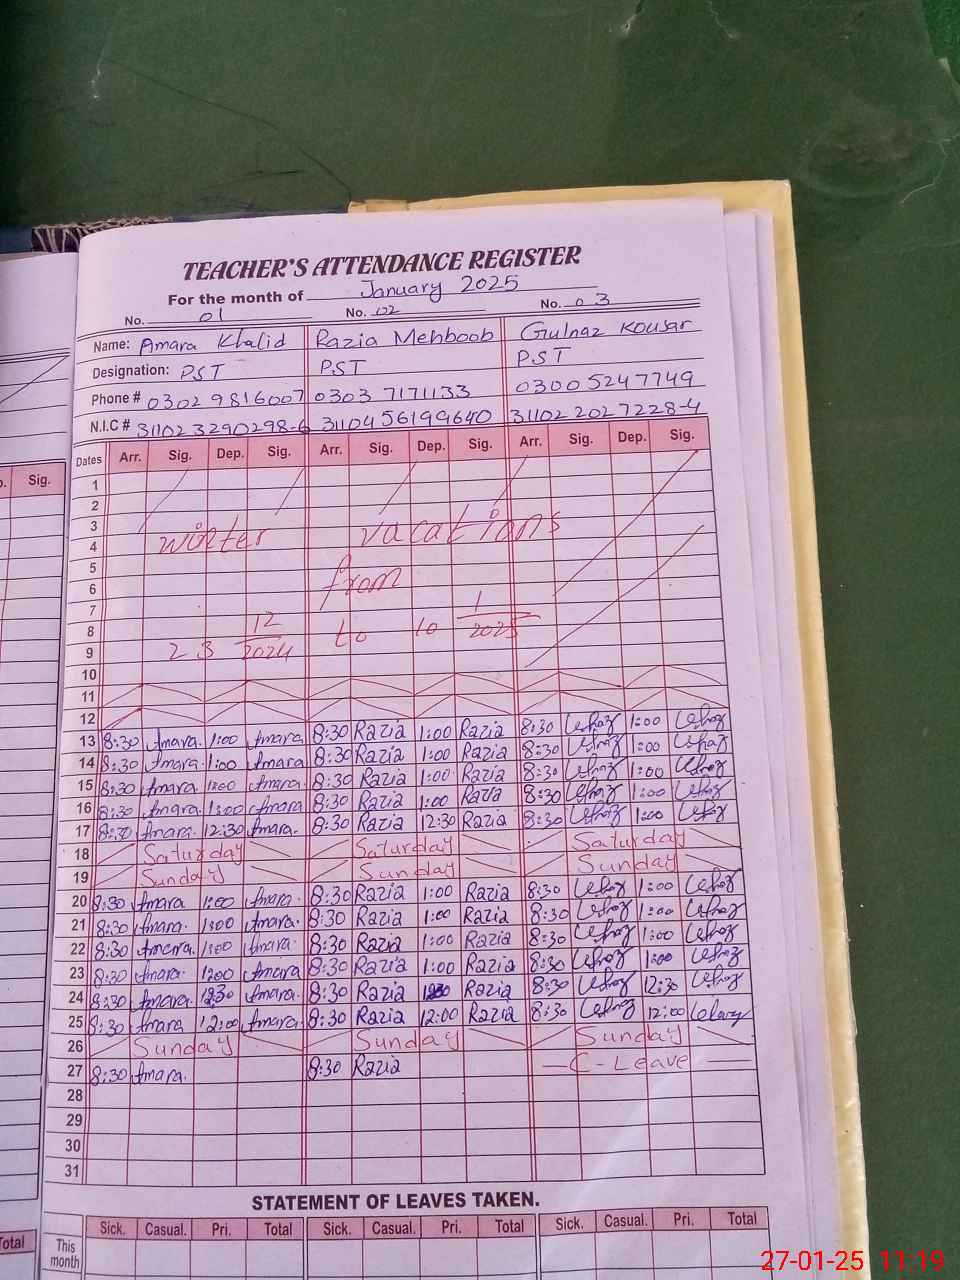 TEACHER'S ATTENDANCE REGISTER
For the month of January 2025
No. 01 No. 02 No. 03
Name: Amara Khalid Razia Mehboob Gulnaz Kousar
Designation: PST PST PST
Phone # 0302 9816007 0303 7171133 0300 5247749
N.I.C # 31102 3290298-6 3110456199640 31102 2027228-4
Dates Arr. Sig. Dep. Sig. Arr. Sig. Dep. Sig. Arr. Sig. Dep. Sig.
Sig.
1
2
3 winter vacations
4
5 from
6
7
8 23 12/2024 to 10 1/2025
9
10
11
12
13 8:30 Amara. 1:00 Amara 8:30 Razia 1:00 Razia 8:30 1:00
14 8:30 Amara. 1:00 Amara 8:30 Razia 1:00 Razia 8:30 1:00
15 8:30 Amara 1:00 Amara 8:30 Razia 1:00 Razia 8:30 1:00
16 8:30 Amara. 1:00 Amara 8:30 Razia 1:00 Razia 8:30 1:00
17 8:30 Amara. 12:30 Amara. 8:30 Razia 12:30 Razia 8:30 1:00
18 Saturday Saturday Saturday
19 Sunday Sunday Sunday
20 8:30 Amara 1:00 Amara. 8:30 Razia 1:00 Razia 8:30 1:00
21 8:30 Amara. 1:00 Amara. 8:30 Razia 1:00 Razia 8:30 1:00
22 8:30 Amara 1:00 Amara. 8:30 Razia 1:00 Razia 8:30 1:00
23 8:30 Amara. 1:00 Amara 8:30 Razia 1:00 Razia 8:30 1:00
24 8:30 Amara. 12:30 Amara. 8:30 Razia 12:30 Razia 8:30 12:30
25 8:30 Amara 12:00 Amara. 8:30 Razia 12:00 Razia 8:30 12:00
26 Sunday Sunday Sunday
27 8:30 Amara. 8:30 Razia — C-Leave —
28
29
30
31
STATEMENT OF LEAVES TAKEN.
Sick. Casual. Pri. Total Sick. Casual. Pri. Total Sick. Casual. Pri. Total
Total
This month
27-01-25 11:19